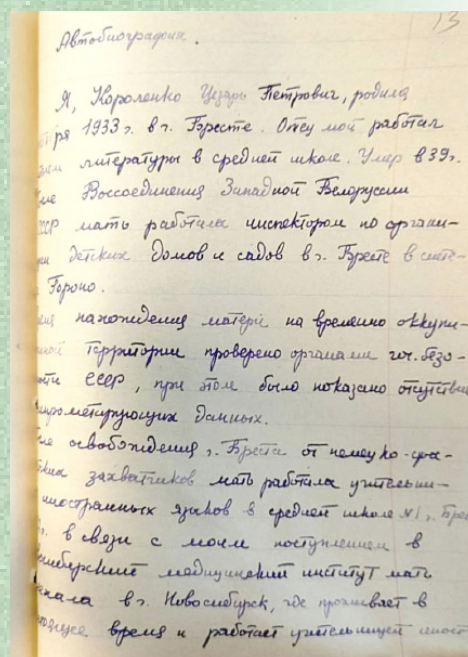 13
Автобиография.
Я, Короленко Цезарь Петрович, родился
1933 г. в г. Бресте. Отец мой работал
литературы в средней школе. Умер в 39 г.
Воссоединения Западной Белоруссии
СССР мать работала инспектором по органи-
детских домов и садов в г. Бресте в
Гороно.
нахождения матери на временно оккупи-
территории проверено органами гос. безо-
СССР, при этом было показано отсутствие
данных.
освобождения г. Бреста от немецко-фа-
захватчиков мать работала учительни-
иностранных языков в средней школе №1 г.
в связи с моим поступлением в
медицинский институт мать
в г. Новосибирск, где проживает в
время и работает учительницей